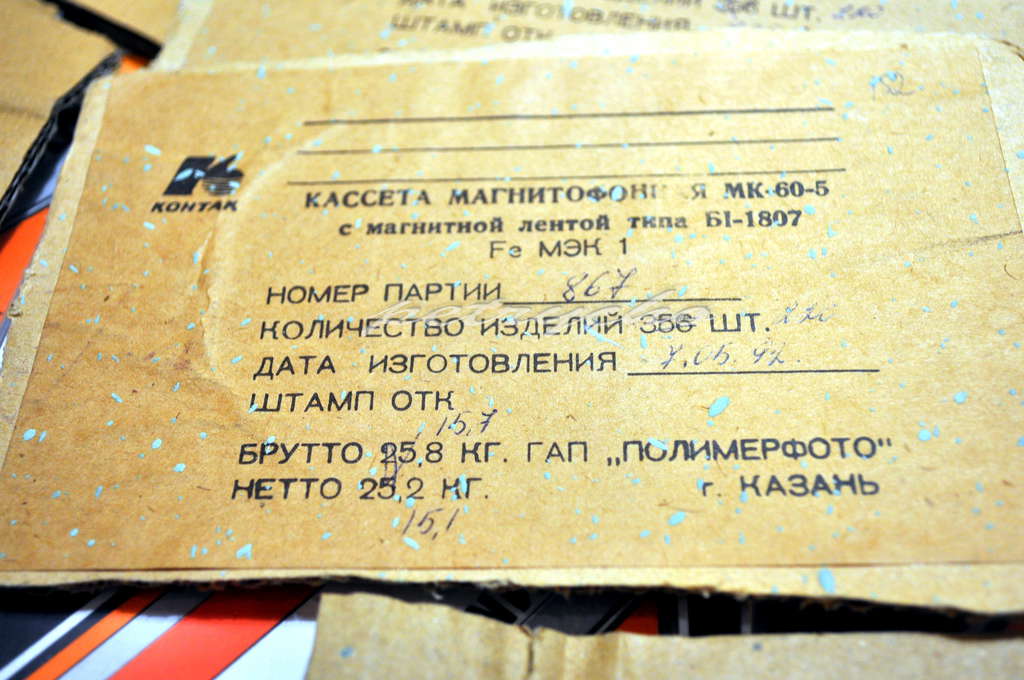 ДАТА ИЗГОТОВЛЕНИЯ
ШТАМП ОТК
366 ШТ. 220
182
КОНТАК
КАССЕТА МАГНИТОФОН Я МК-60-5
с магнитной лентой типа Б1-1807
Fe МЭК 1
НОМЕР ПАРТИИ 867
КОЛИЧЕСТВО ИЗДЕЛИЙ 366 ШТ. 220
ДАТА ИЗГОТОВЛЕНИЯ 7.05.92.
ШТАМП ОТК
15,7
БРУТТО 25,8 КГ. ГАП „ПОЛИМЕРФОТО"
НЕТТО 25,2 КГ. г. КАЗАНЬ
15,1